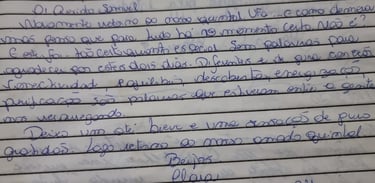 Oi Querido Samuel
Novamente retorno ao nosso quintal Ufa... e como demorou
mas penso que para tudo há no momento certo Não é?
E estejam tão certo quanto especial. Sem palavras para
agradecer por estes dois dias. Diferentes e de pura conexão
Conectividade, equilíbrio, descoberta, energização
purificação são palavras que estiveram entre a gente
nos navegando.
Deixo um até breve e uma sensação de pura
gratidão. Logo retorno ao nosso amado quintal
Beijos